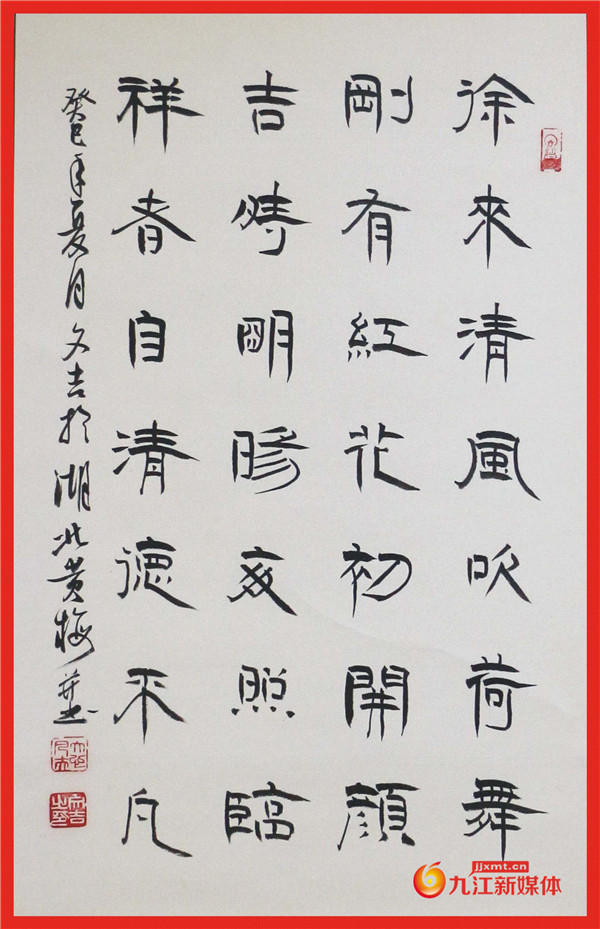 徐來清風吹荷舞
剛有紅花初開顏
吉時明照臨
祥者自清德不凡
癸巳年夏月文吉於湖北黄梅并书
jjxmt.cn
九江新媒体